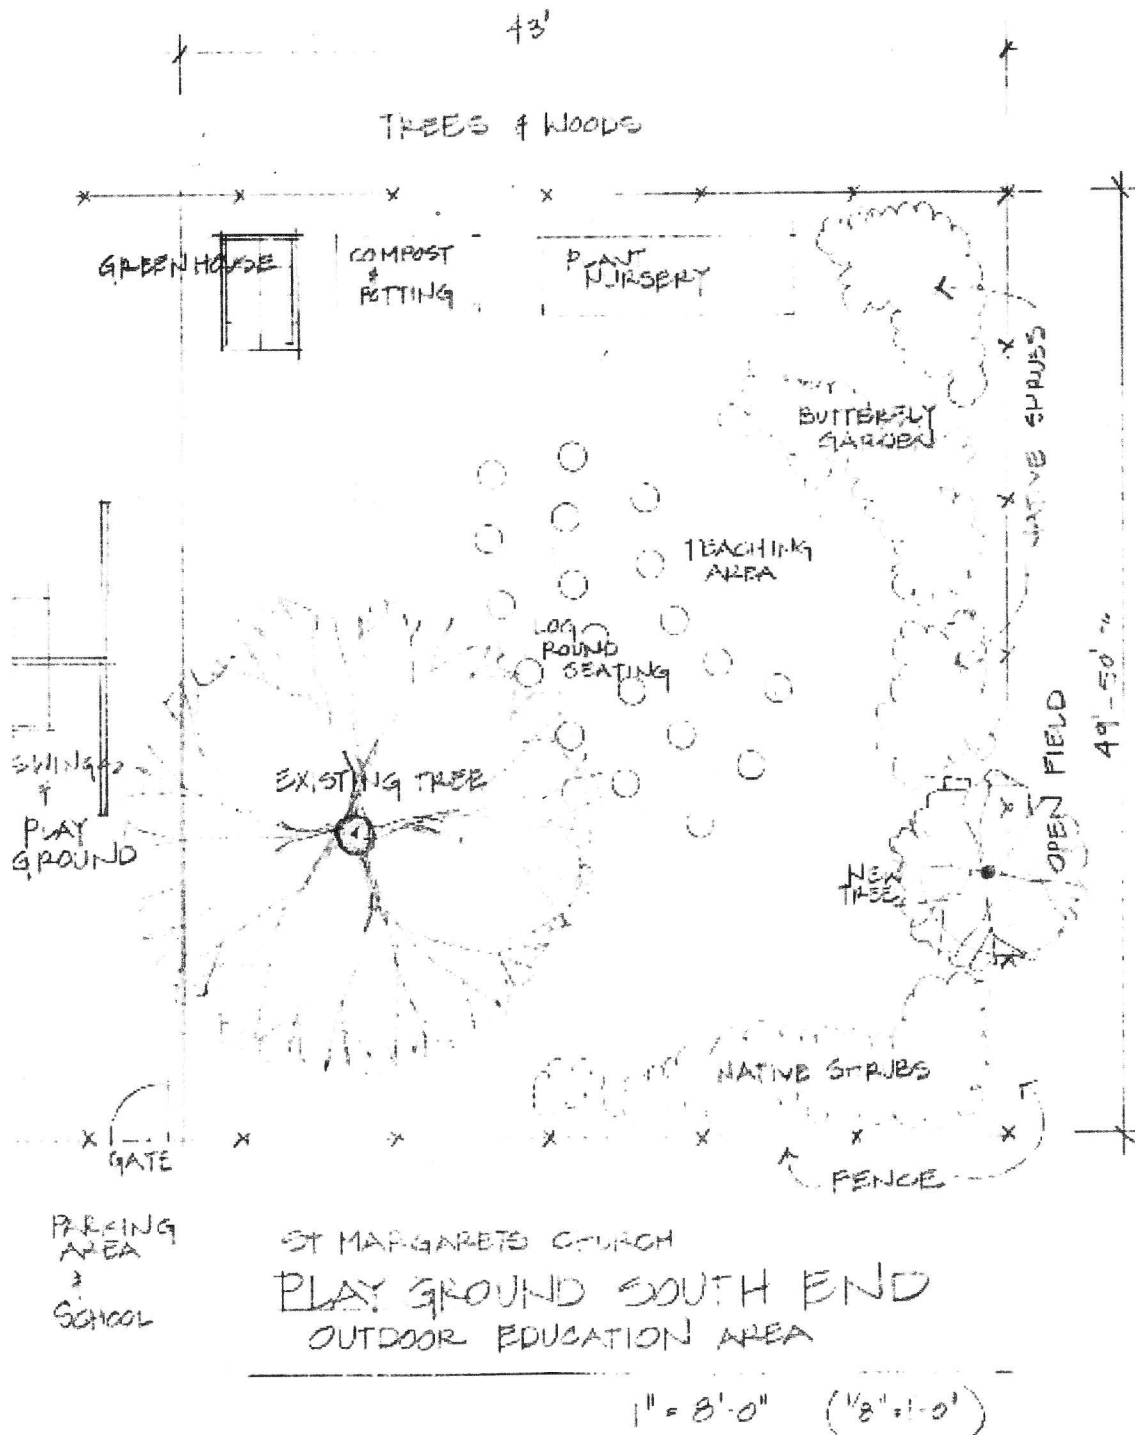 43'
TREES & WOODS
GREENHOUSE
COMPOST
&
POTTING
PLANT
NURSERY
NATIVE SHRUBS
BUTTERFLY
GARDEN
TEACHING
AREA
LOG
ROUND
SEATING
49'-50'
OPEN FIELD
SWINGS
&
PLAY
GROUND
EXISTING TREE
NEW
TREE
NATIVE SHRUBS
GATE
FENCE
PARKING
AREA
&
SCHOOL
ST MARGARETS CHURCH
PLAY GROUND SOUTH END
OUTDOOR EDUCATION AREA
1" = 8'-0" (1/8"=1-0")